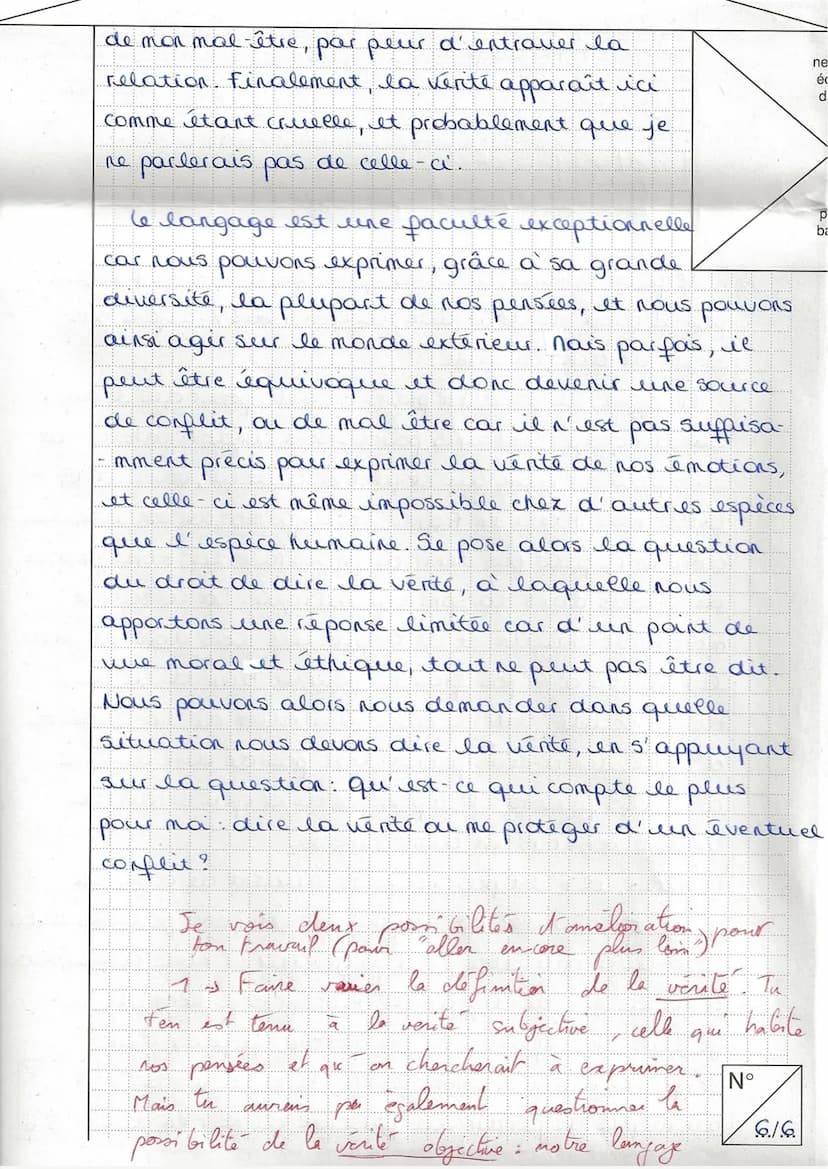 de mon mal-être, par peur d'entraver la
relation. Finalement, la vérité apparaît ici
comme étant cruelle, et probablement que je
ne parlerais pas de celle-ci.
Le langage est une faculté exceptionnelle
car nous pouvons exprimer, grâce à sa grande
diversité, la plupart de nos pensées, et nous pouvons
ainsi agir sur le monde extérieur. Mais parfois, il
peut être équivoque et donc devenir une source
de conflit, ou de mal être car il n'est pas suffisa-
-mment précis pour exprimer la vérité de nos émotions,
et celle-ci est même impossible chez d'autres espèces
que l'espèce humaine. Se pose alors la question
du droit de dire la vérité, à laquelle nous
apportons une réponse limitée car d'un point de
vue moral et éthique, tout ne peut pas être dit.
Nous pouvons alors nous demander dans quelle
situation nous devons dire la vérité, en s'appuyant
sur la question : Qu'est-ce qui compte le plus
pour moi : dire la vérité ou me protéger d'un éventuel
conflit ?
Je vois deux possibilités d'amélioration, pour
ton travail (pour "aller encore plus loin")
1 → Faire varier la définition de la vérité. Tu
t'en est tenu à la vérité subjective, celle qui habite
nos pensées et qu'on chercherait à exprimer.
Mais tu aurais pu également questionner la
possibilité de la vérité objective : notre langage
ne
éc
d
p
ba
N°
6/6